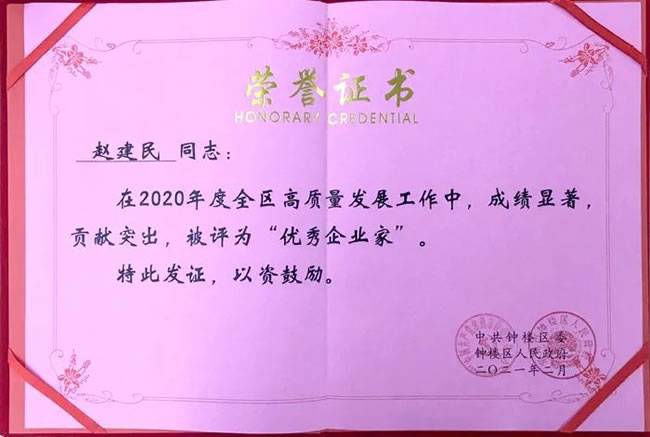 荣誉证书
HONORARY CREDENTIAL
赵建民 同志：
在2020年度全区高质量发展工作中，成绩显著，
贡献突出，被评为“优秀企业家”。
特此发证，以资鼓励。
中共钟楼区委
钟楼区人民政府
二〇二一年二月